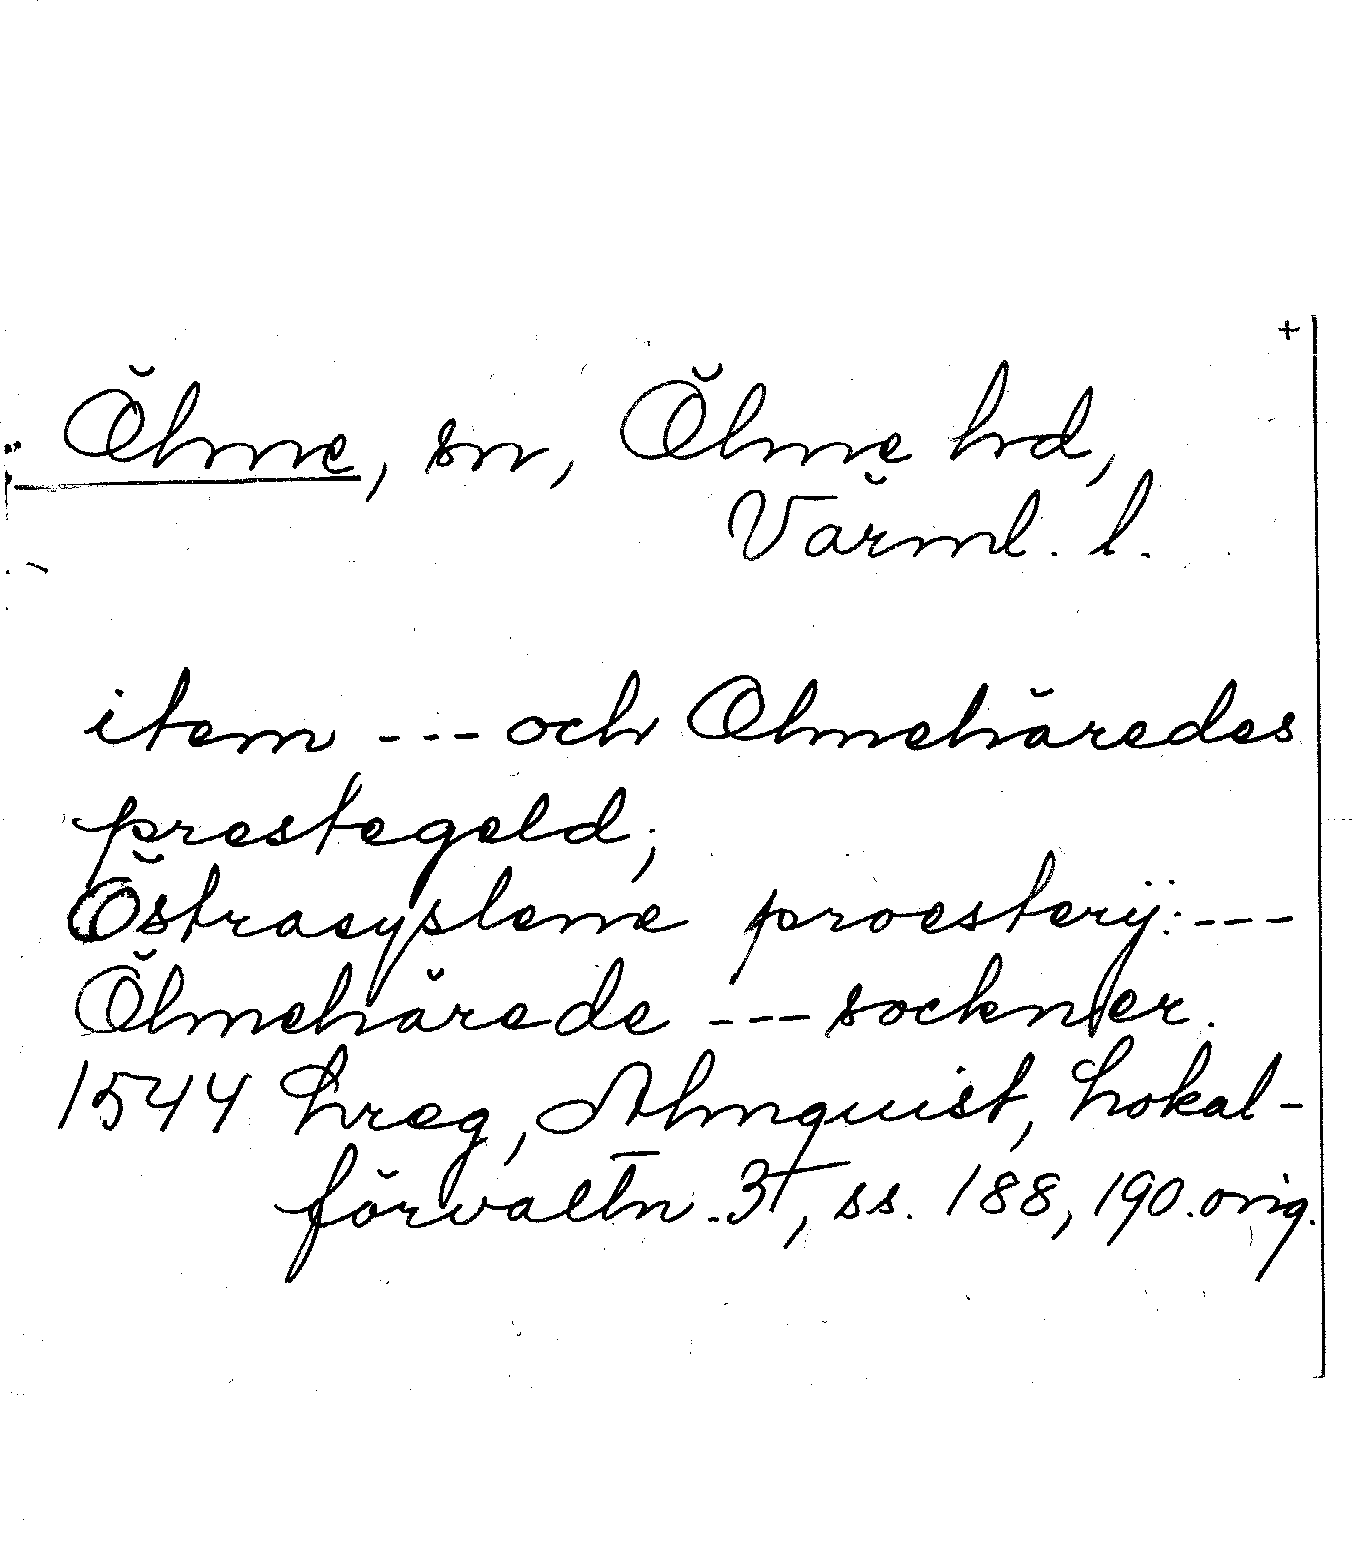 +
Ölme, sn, Ölme hd,
Värml. l.
item --- och Olmehäredes
prestegeld;
Östraesyslene proesterÿ: ---
Ölmehärede --- sockner.
1544 Lreg, Almquist, Lokal-
förvaltn. 3, ss. 188, 190. orig.